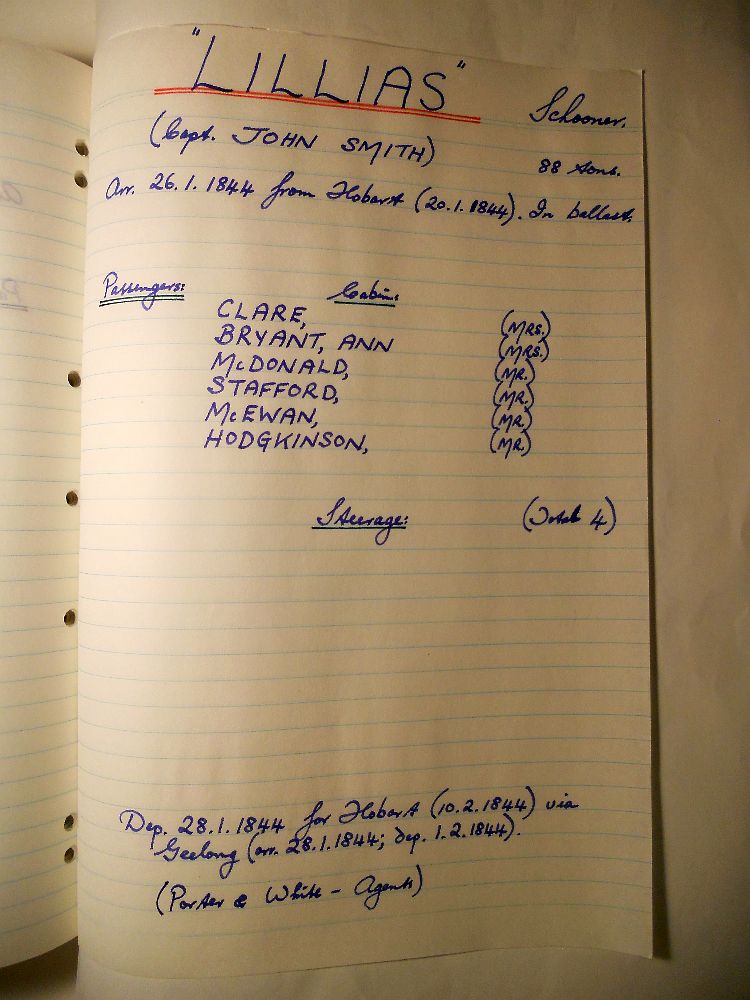 "LILLIAS"
Schooner.
(Capt. JOHN SMITH)
88 tons.
Arr. 26.1.1844 from Hobart (20.1.1844). In ballast.
Passengers: Cabin:
CLARE, (MRS.)
BRYANT, ANN (MRS.)
McDONALD, (MR.)
STAFFORD, (MR.)
McEWAN, (MR.)
HODGKINSON, (MR.)
Steerage: (Total 4)
Dep. 28.1.1844 for Hobart (10.2.1844) via
Geelong (arr. 28.1.1844; dep. 1.2.1844).
(Porter & White - Agents)